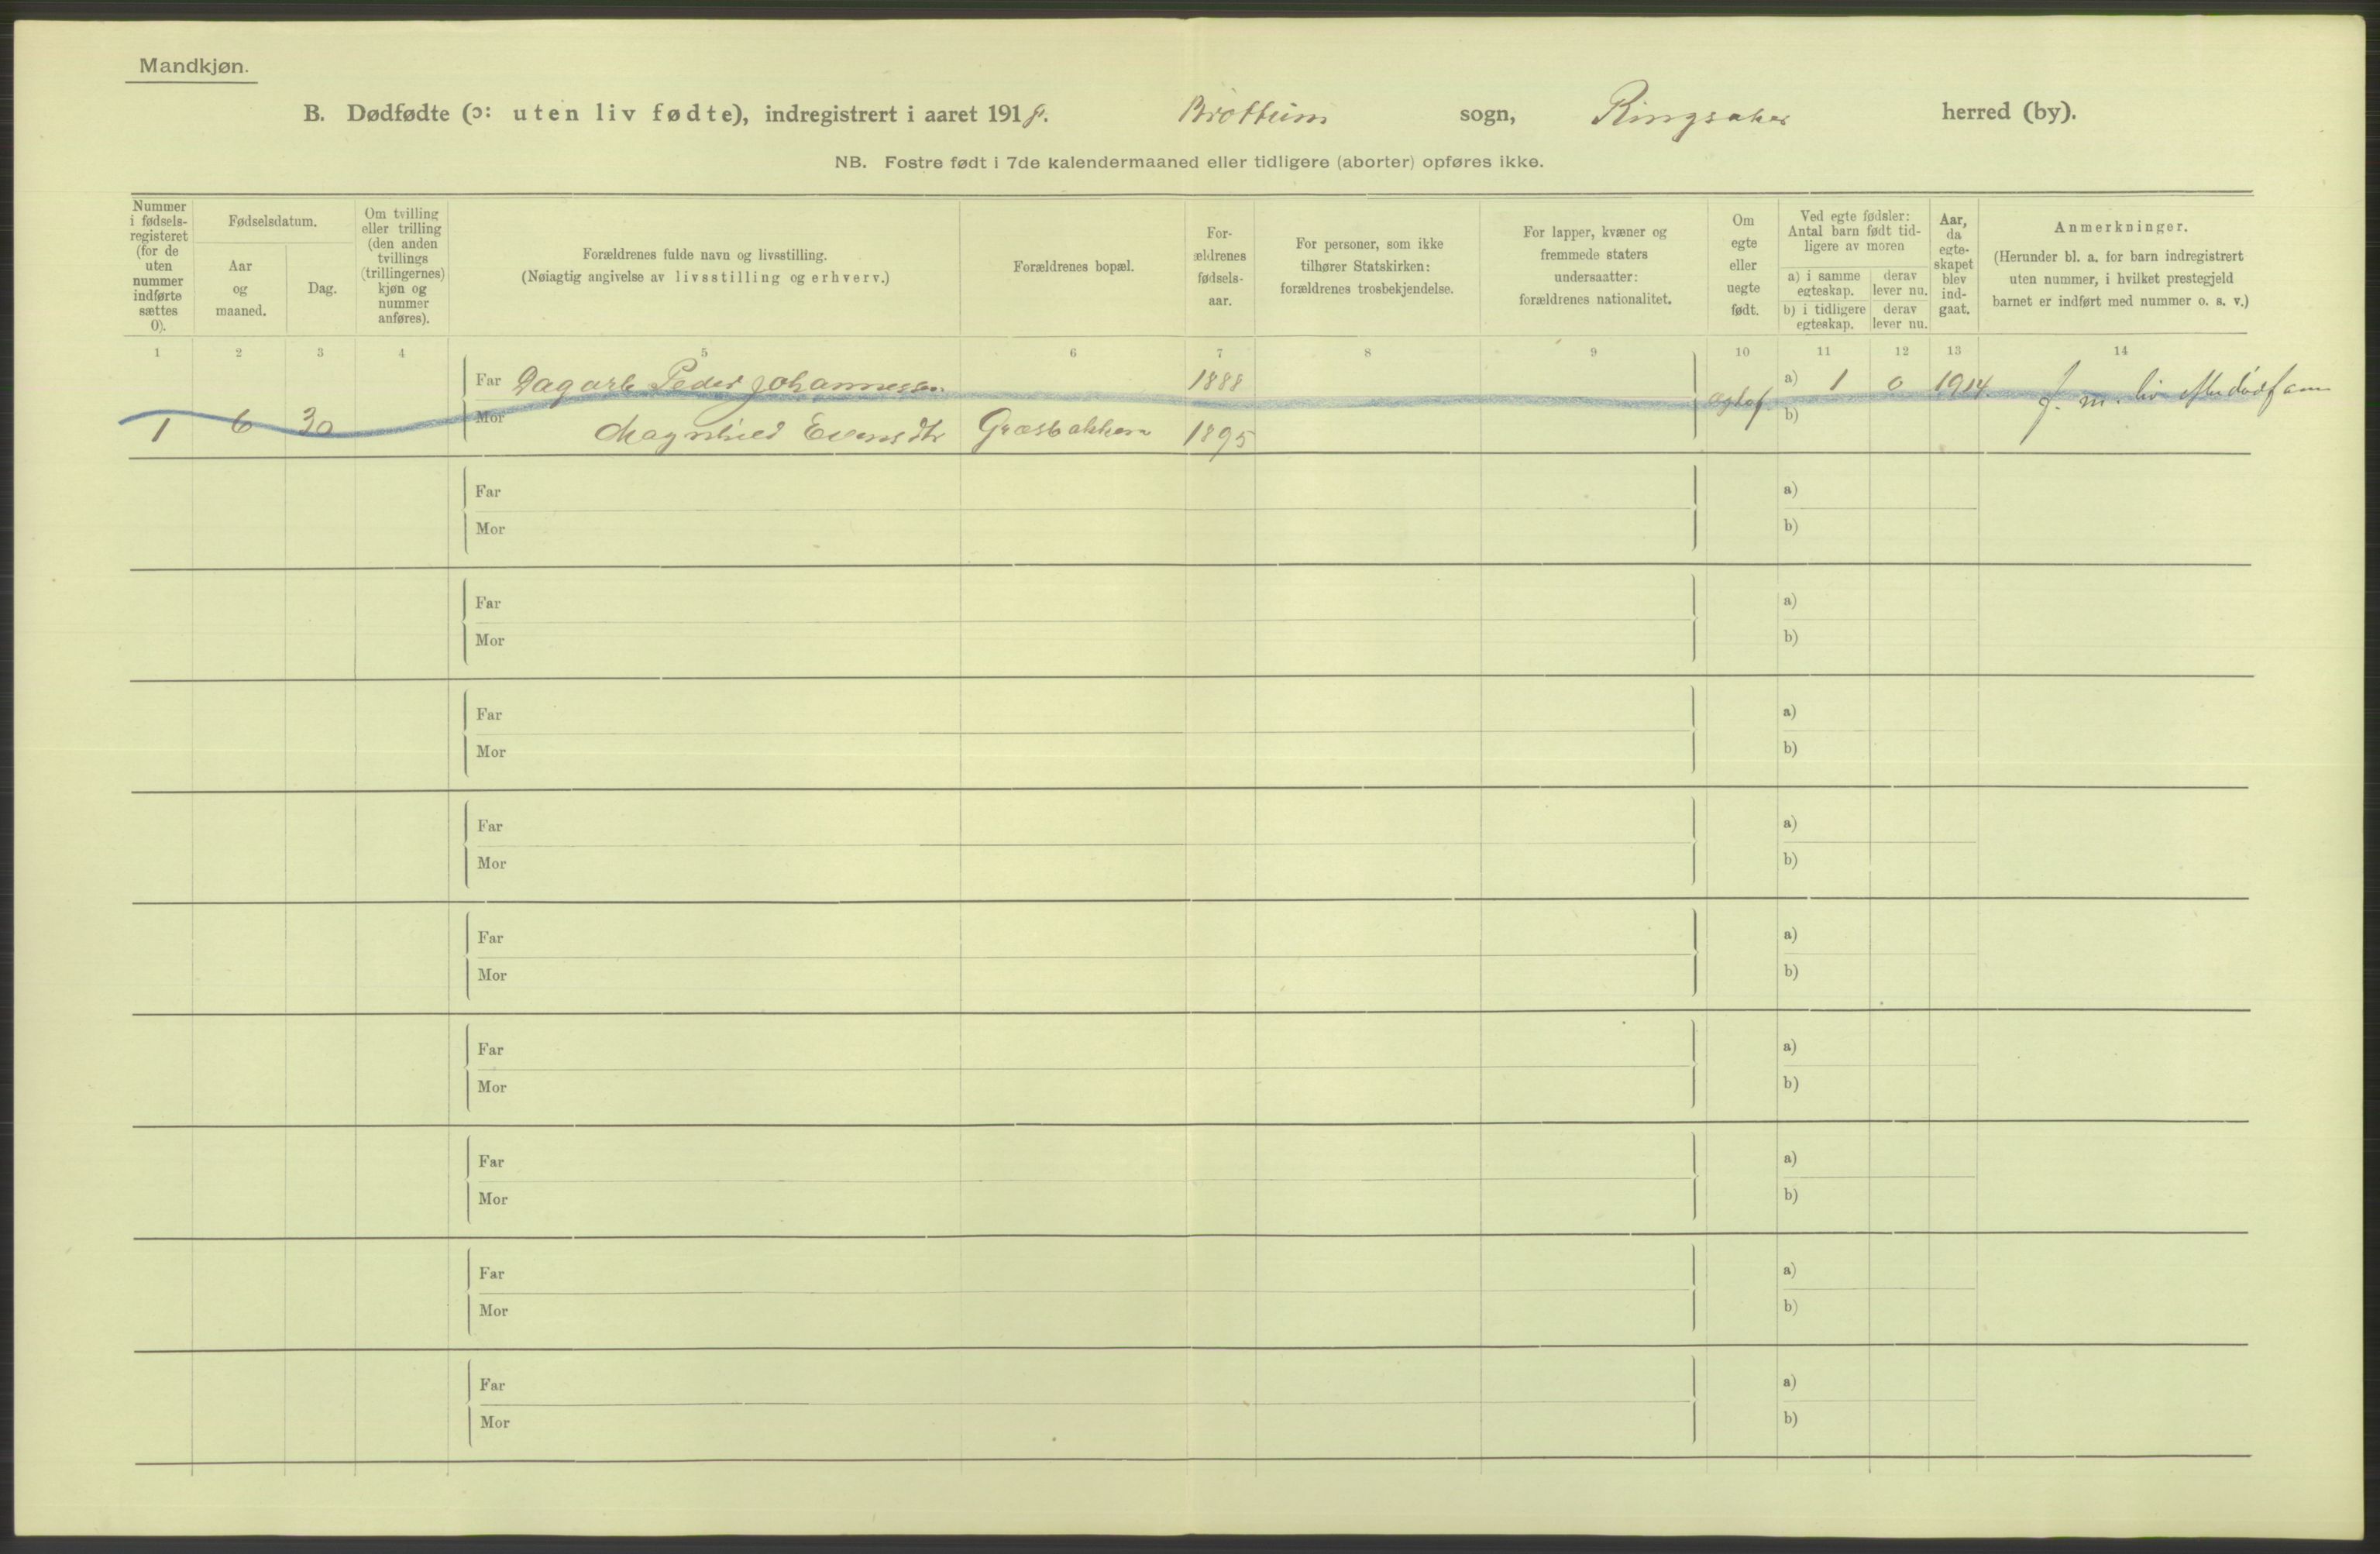 Mandkjøn.
B. Dødfødte (ɔ: uten liv fødte), indregistrert i aaret 1918. Brøttum sogn, Ringsaker herred (by).
NB. Fostre født i 7de kalendermaaned eller tidligere (aborter) opføres ikke.
Nummer i fødsels-registeret (for de uten nummer indførte sættes 0).
Fødselsdatum.
Aar og maaned.
Dag.
Om tvilling eller trilling (den anden tvillings (trillingernes) kjøn og nummer anføres).
Forældrenes fulde navn og livsstilling.
(Nøiagtig angivelse av livsstilling og erhverv.)
Forældrenes bopæl.
For-ældrenes fødsels-aar.
For personer, som ikke tilhører Statskirken: forældrenes trosbekjendelse.
For lapper, kvæner og fremmede staters undersaatter: forældrenes nationalitet.
Om egte eller uegte født.
Ved egte fødsler: Antal barn født tid-ligere av moren
a) i samme egteskap. derav lever nu.
b) i tidligere egteskap. derav lever nu.
Aar, da egte-skapet blev ind-gaat.
Anmerkninger.
(Herunder bl. a. for barn indregistrert uten nummer, i hvilket prestegjeld barnet er indført med nummer o. s. v.)
1 2 3 4 5 6 7 8 9 10 11 12 13 14
Far Dagarb Peder Johannessen 1888 a) 1 0 1914
1 6 30 Mor Magnhild Evensdtr Græsbakken 1895 b)
Far a)
Mor b)
Far a)
Mor b)
Far a)
Mor b)
Far a)
Mor b)
Far a)
Mor b)
Far a)
Mor b)
Far a)
Mor b)
Far a)
Mor b)
Far a)
Mor b)